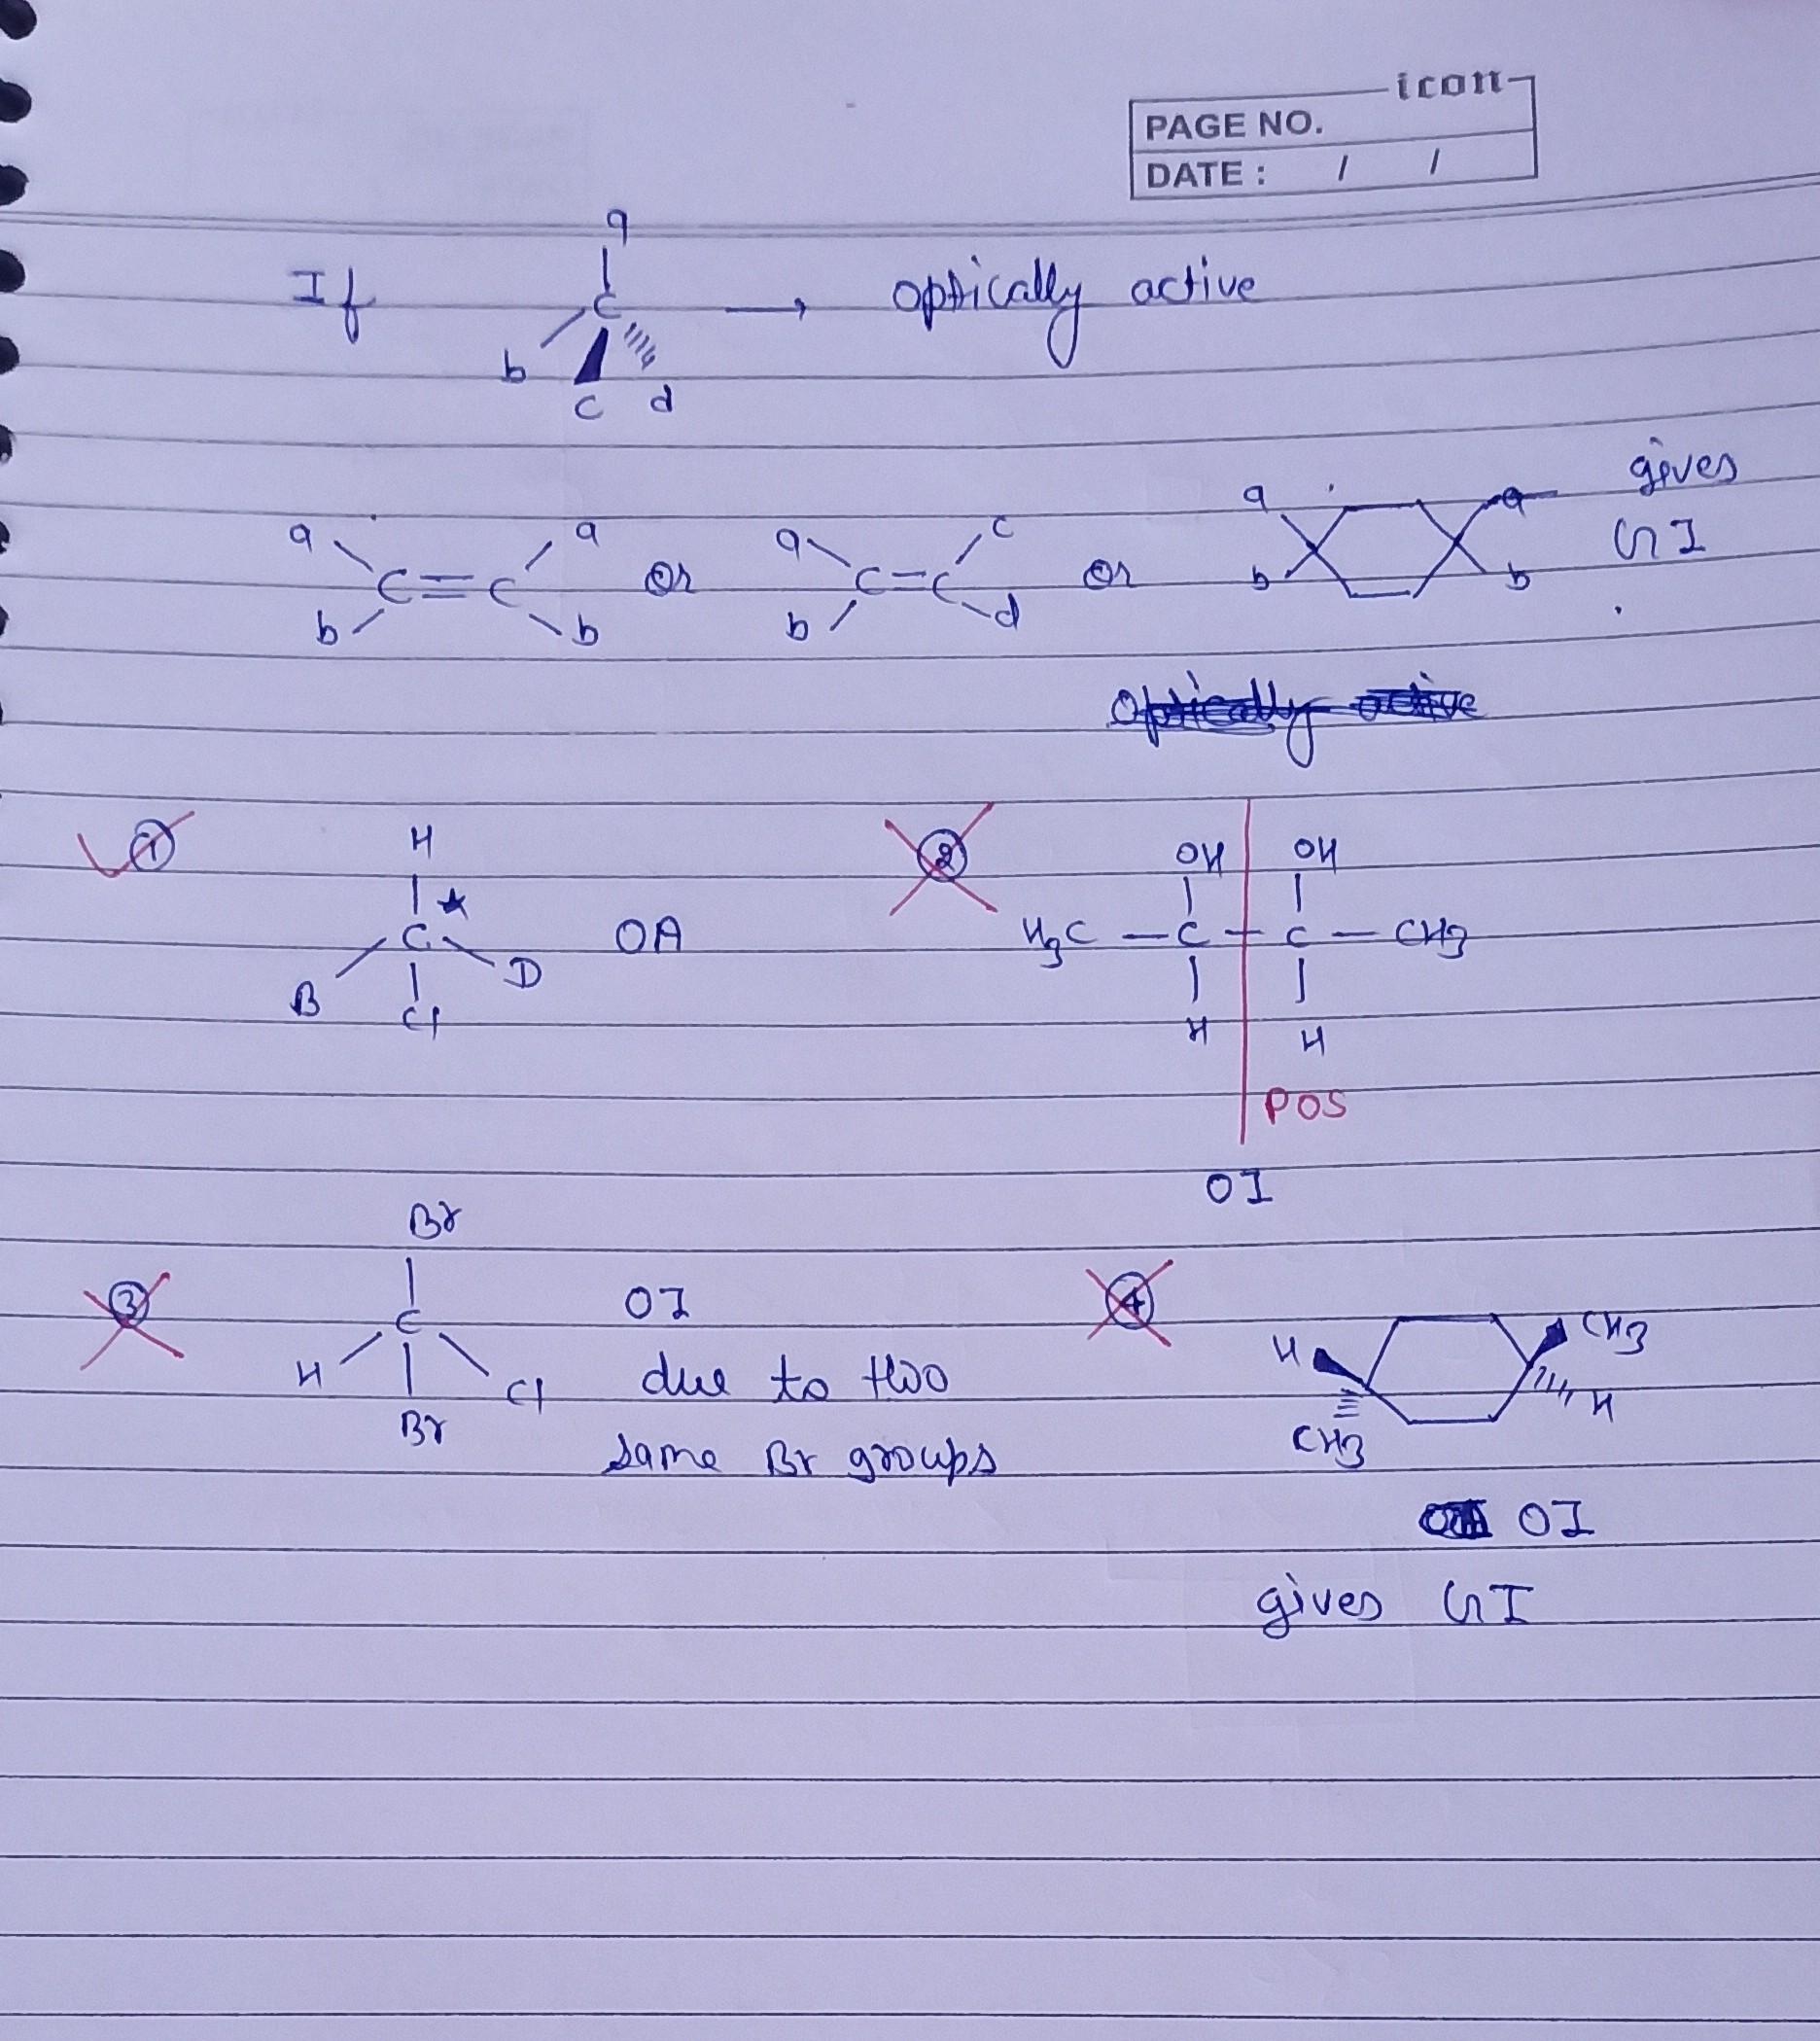 icon
PAGE NO.
DATE : / /
a
If C → optically active
b
c d
gives
a a a c a a
C=C or C=C or GI
b b b d b b
① H ② OH OH
C * OA H3C — C — C — CH3
B D
Cl H H
POS
OI
Br
③ C OI ④ CH3
H Cl due to two H H
Br same Br groups CH3
OI
gives GI